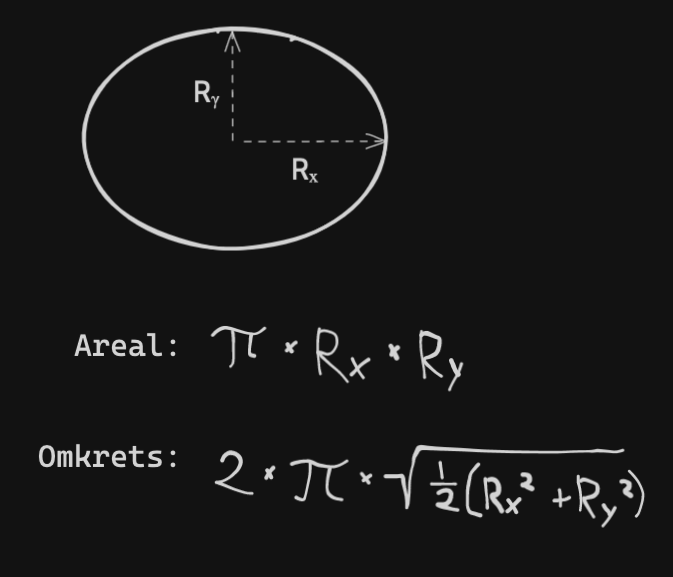 Rᵧ
Rₓ
Areal: π * Rₓ * Rᵧ
Omkrets: 2 * π * √(½(Rₓ² + Rᵧ²))